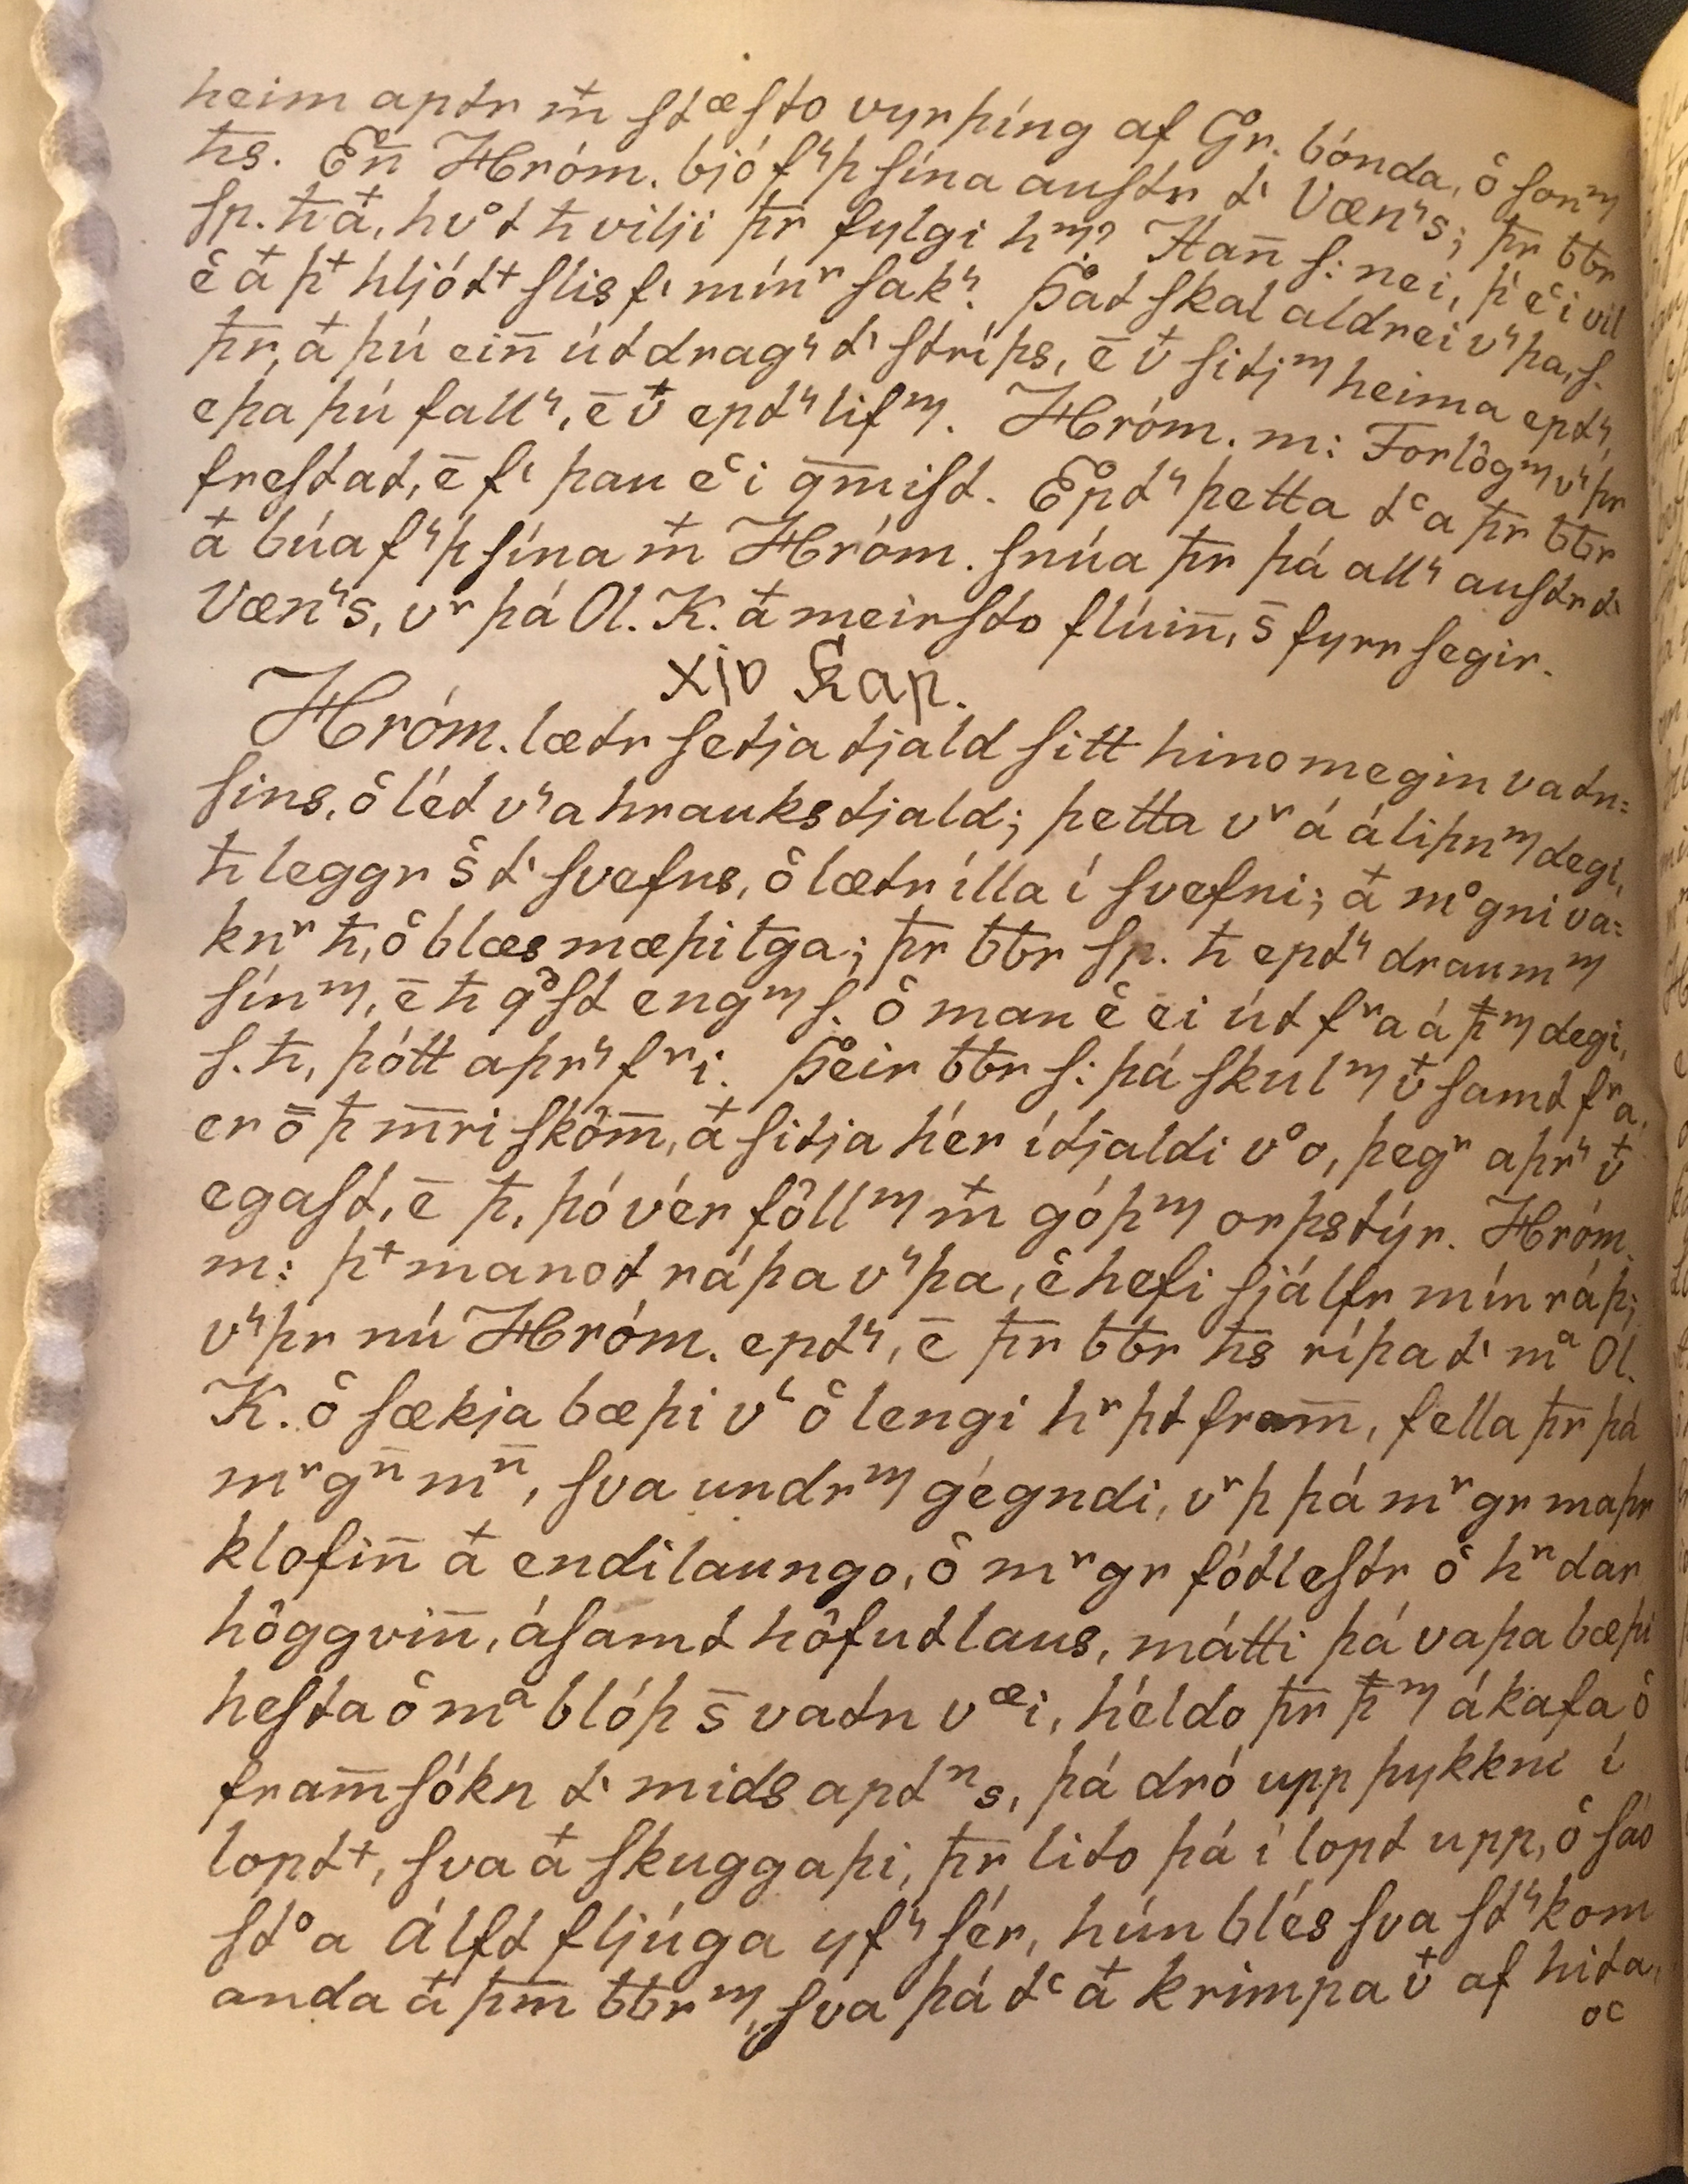 heim aptr m̄ stæsto vyrþíng af Gr. bónda, ô sonᵐ
ħs. En̄ Hróm. bjó fʳþ sína austr tⁱ Vænʳs; þr̄ ƀƀr
sp. ħ at, hvᵒt ħ vilji þr̄ fylgi hᵐ? Han̄ s: nei, þⁱ eᶜi vil
ê at þᵗ hljótᵗ slis fⁱ mínʳ sakʳ. Þat skal aldrei vʳþa, s.
þr̄, at þú ein̄ út dragʳ tⁱ stríþs, ē vᵗ sitjᵐ heima eptʳ,
eþa þú fallʳ, ē vᵗ eptʳ lifᵐ. Hróm. m: Forlôgᵐ vʳþr
frestat, ē fⁱ þau eᶜi ḡmist. Eptʳ þetta tᶜa þr̄ ƀƀr
at búa fʳþ sína m̄ Hróm. snúa þr̄ þá allʳ austr tⁱ
Vænʳs, vʳ þá Ol. K. at meirsto flúin̄, s̄ fyrr segir.
xiv Kap.
Hróm. lætr setja tjald sitt hinomegin vatn=
sins, ô lét vʳa hrauks tjald; þetta vʳ á áliþnᵐ degi,
ħ leggr ŝ tⁱ svefns, ô lætr ílla í svefni; at mᵒgni va=
knʳ ħ, ô blæs mæþilga; þr̄ ƀƀr sp. ħ eptʳ draumᵐ
sínᵐ, ē ħ qᵒst engᵐ s. ô man ê ei út fʳa á þᵐ degi,
s. ħ, þótt aþrʳ fʳi. Þeir ƀƀr s: þá skulᵐ vᵗ samt fʳa,
er ō þ m̄ri skôm̄, at sitja hér í tjaldi vᵒo, þegʳ aþrʳ vᵗ
egast, ē þ, þó vér fôllᵐ m̄ góþᵐ orþstýr. Hróm.
m: þᵗ manot ráþa vʳþa, ê hefi sjálfr mín ráþ;
vʳþr nú Hróm. eptʳ, ē þr̄ ƀƀr ħs ríþa tⁱ mᵃ Ol.
K. ô sækja bæþi vˡ ô lengi hʳþt fram̄, fella þr̄ þá
mʳgn̄ mn̄, sva undrᵐ gégndi, vʳþ þá mʳgr maþr
klofin̄ at endilaungo, ô mʳgr fótlestr ô hʳdar
hôggvin̄, ásamt hôfutlaus, mátti þá vaþa bæþi
hesta ô mᵃ blóþ s̄ vatn væi, héldo þr̄ þᵐ ákafa ô
fram̄sókn tⁱ mids aptⁿs, þá dró upp þykkni í
loptᵗ, sva at skuggaþi, þr̄ lito þá í lopt upp, ô sáo
stᵒa Álft fljúga yfʳ sér, hún blés sva stʳkom
anda at þm̄ ƀƀrᵐ, sva þá tᶜ at krimpa vᵗ af hita,
oc